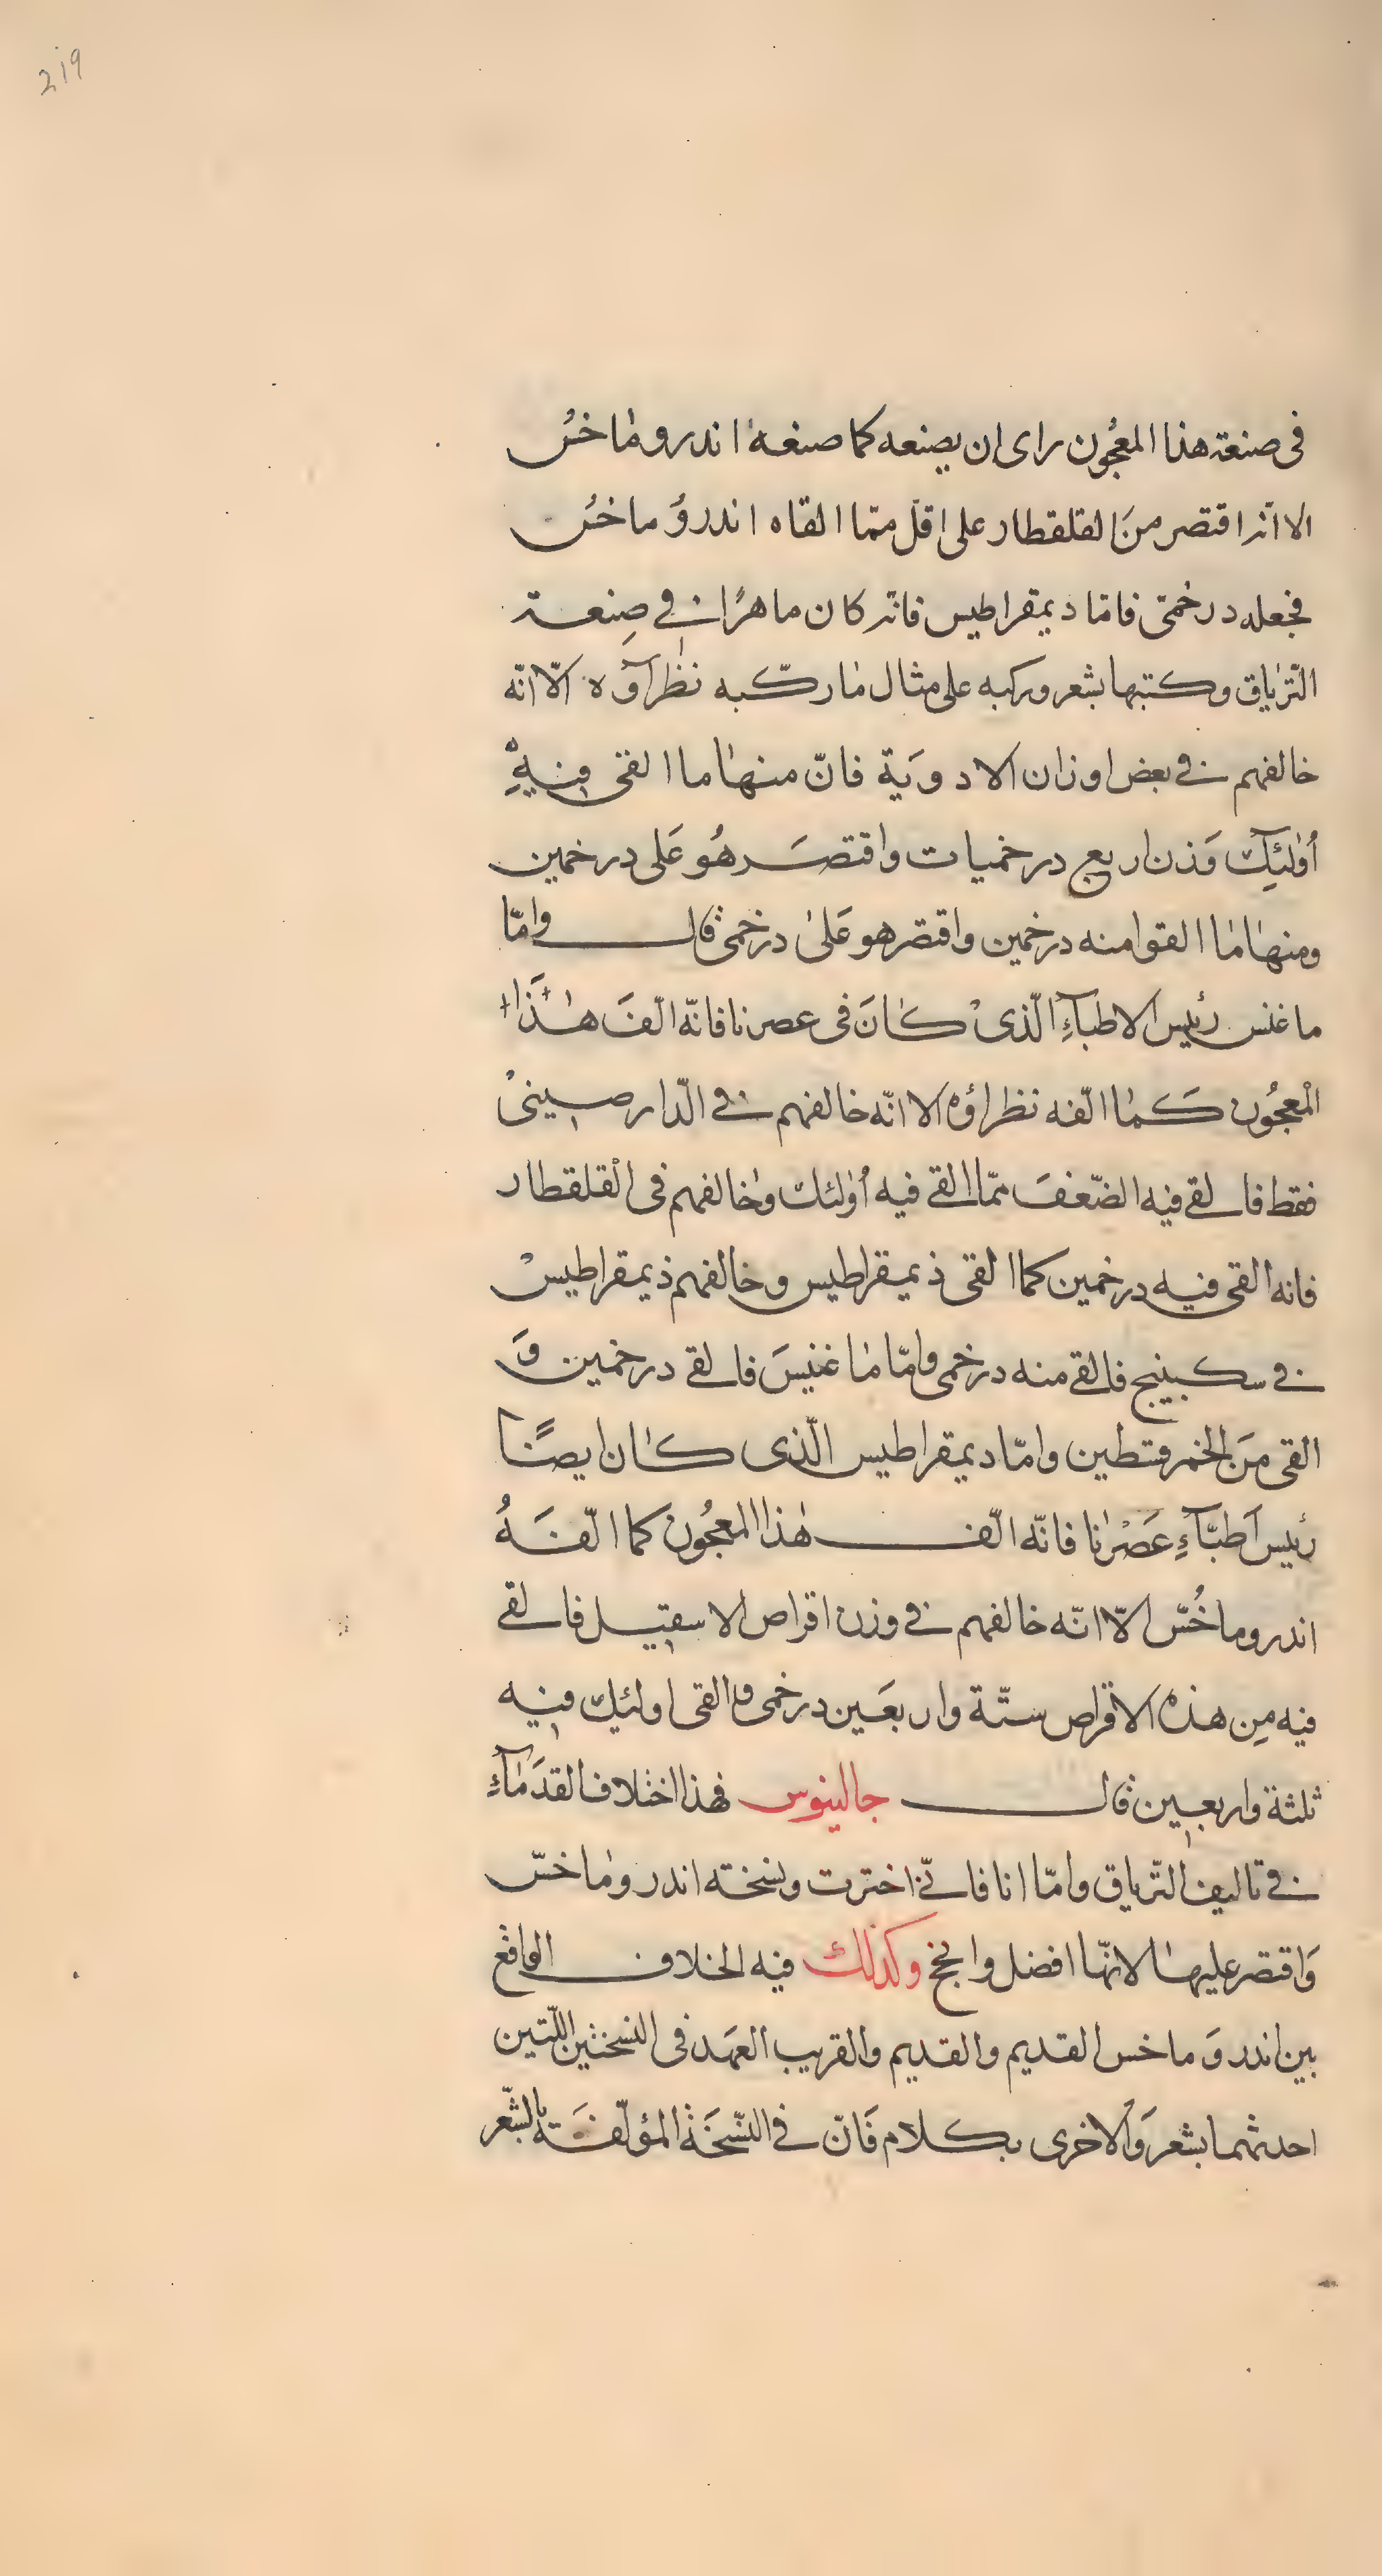 219
فى صنعة هذا المعُجون راى ان يصنعه كما صنعه اندروماخسُ
الا انّه اقتصر منَ القلقطار على اقلّ ممّا القاه اندروُماخسُ
فجعله درخمتى فامّا ديمقراطيس فانّه كان ماهرًا فى صِنعـة
التّرياق وكتبها بشعر وركبه على مثال ما ركّبه نظرآؤه الّا انّه
خالفهم فى بعض اوزان الادوَية فانّ منها ما القى فيهِ
أولئِك وَزن اربع درخميات واقتصَر هُو عَلى درخمين
ومنها ما القوا منه درخمين واقتصر هو عَلى درخمى قال وامّا
ماغنس رئيس الاطبآءِ الّذىْ كانَ فى عصرنا فانّه الّفَ هٰذَا
الْمعجُون كَما الّفه نظراؤه الا انّه خالفهم فى الدّارصينىْ
فقط فالقى فيه الضّعفَ ممّا القى فيه أولئك وخالفهم فى الْقلقطار
فانه القى فيه درخمين كما القى ذيمقراطيس وخالفهم ذيمقراطيسْ
فى سكبينج فالقى منه درخمى وامّا ماغنيسَ فالقى درخمين وَ
القى منَ الخمر قسطين وامّا ديمقراطيس الّذى كان ايضًا
رئيس اَطبّآءِ عَصْرنا فانّه الّف هٰذا المعجُون كما الّفَهُ
اندروماخُسّ الّا انّه خالفهم فى وزن اقراص الاسقيل فالقى
فيه مِن هذه الاقراص ستّة واربعَين درخمى والقى اولئِك فيه
ثلثة واربعين قال جالينوس فهذا اختلاف القدَمآءِ
فى تاليف التّرياق وامّا انا فانّى اخترت ونسخته اندروماخسّ
وَاقتصر عليها لانّها افضل وانجح وكذلك فيه الخلاف الواقع
بين اندروَماخس القديم والقديم والقريب العهَد فى النسختين اللّتين
احدثهما بشعر وَالاخرى بكلام فَانّ فى النّسخَة المؤلّفَة بالشّعر